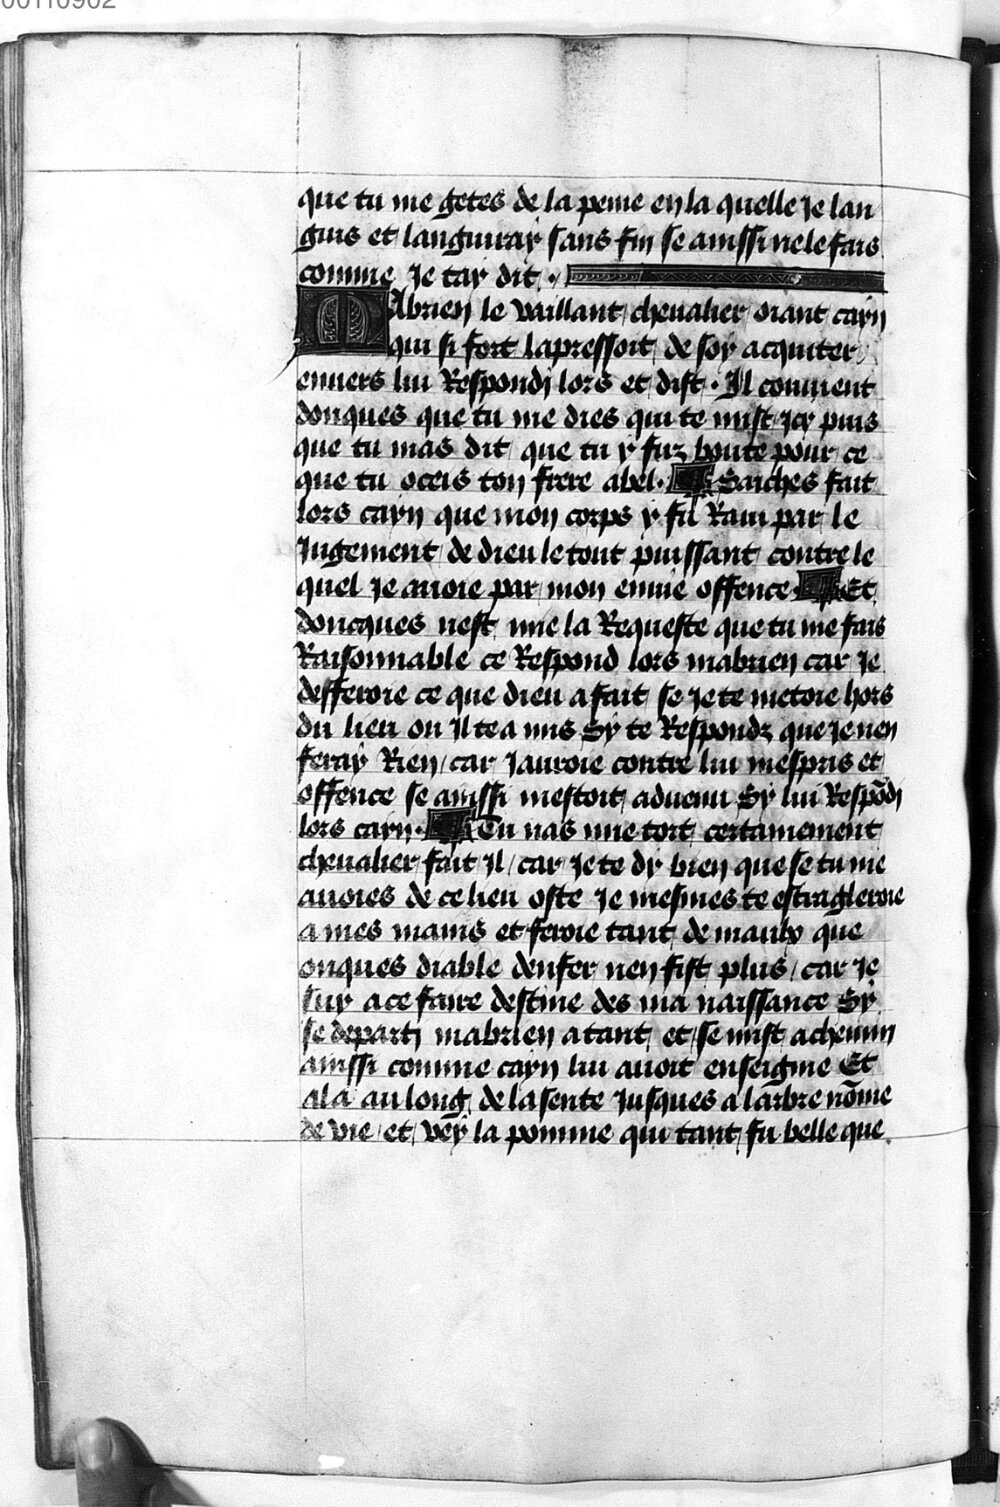 00110902
que tu me getes de la peine en la quelle Je lan
guis et languiray sans fin se ainssi ne le fais
comme Je tay dit .
MAbrien le vaillant chevalier oiant cayn
qui si fort lapressoit de soy acquiter
envers lui Respondi lors et dist . Il convient
donques que tu me dies qui te mist Icy puis
que tu mas dit que tu y fuz boute pour ce
que tu oceis ton frere abel . Saiches fait
lors cayn que mon corps y fu Ravi par le
Jugement de dieu le tout puissant contre le
quel Je avoie par mon envie offence . Et
doncques nest mie la Requeste que tu me fais
Raisonnable ce Respond lors mabrien car Je
defferoie ce que dieu a fait se Je te metoie hors
du lieu ou Il te a mis Sy te Respondz que Je nen
feray Rien / car Jauroie contre lui mespris et
offence se ainssi mestoit advenu Sy lui Respōdi
lors cayn . Tu nas mie tort certainement
chevalier fait Il / car Je te dy bien que se tu me
avoies de ce lieu oste Je mesmes te estragleroie
a mes mains et feroie tant de maulx que
onques diable denfer nen fist plus / car Je
suy a ce faire destine des ma naissance Sy
se departi mabrien atant et se mist a chemin
ainssi comme cayn lui avoit enseigne Et
ala au long de la sente Jusques a larbre nōme
de vie et vey la pomme qui tant fu belle que